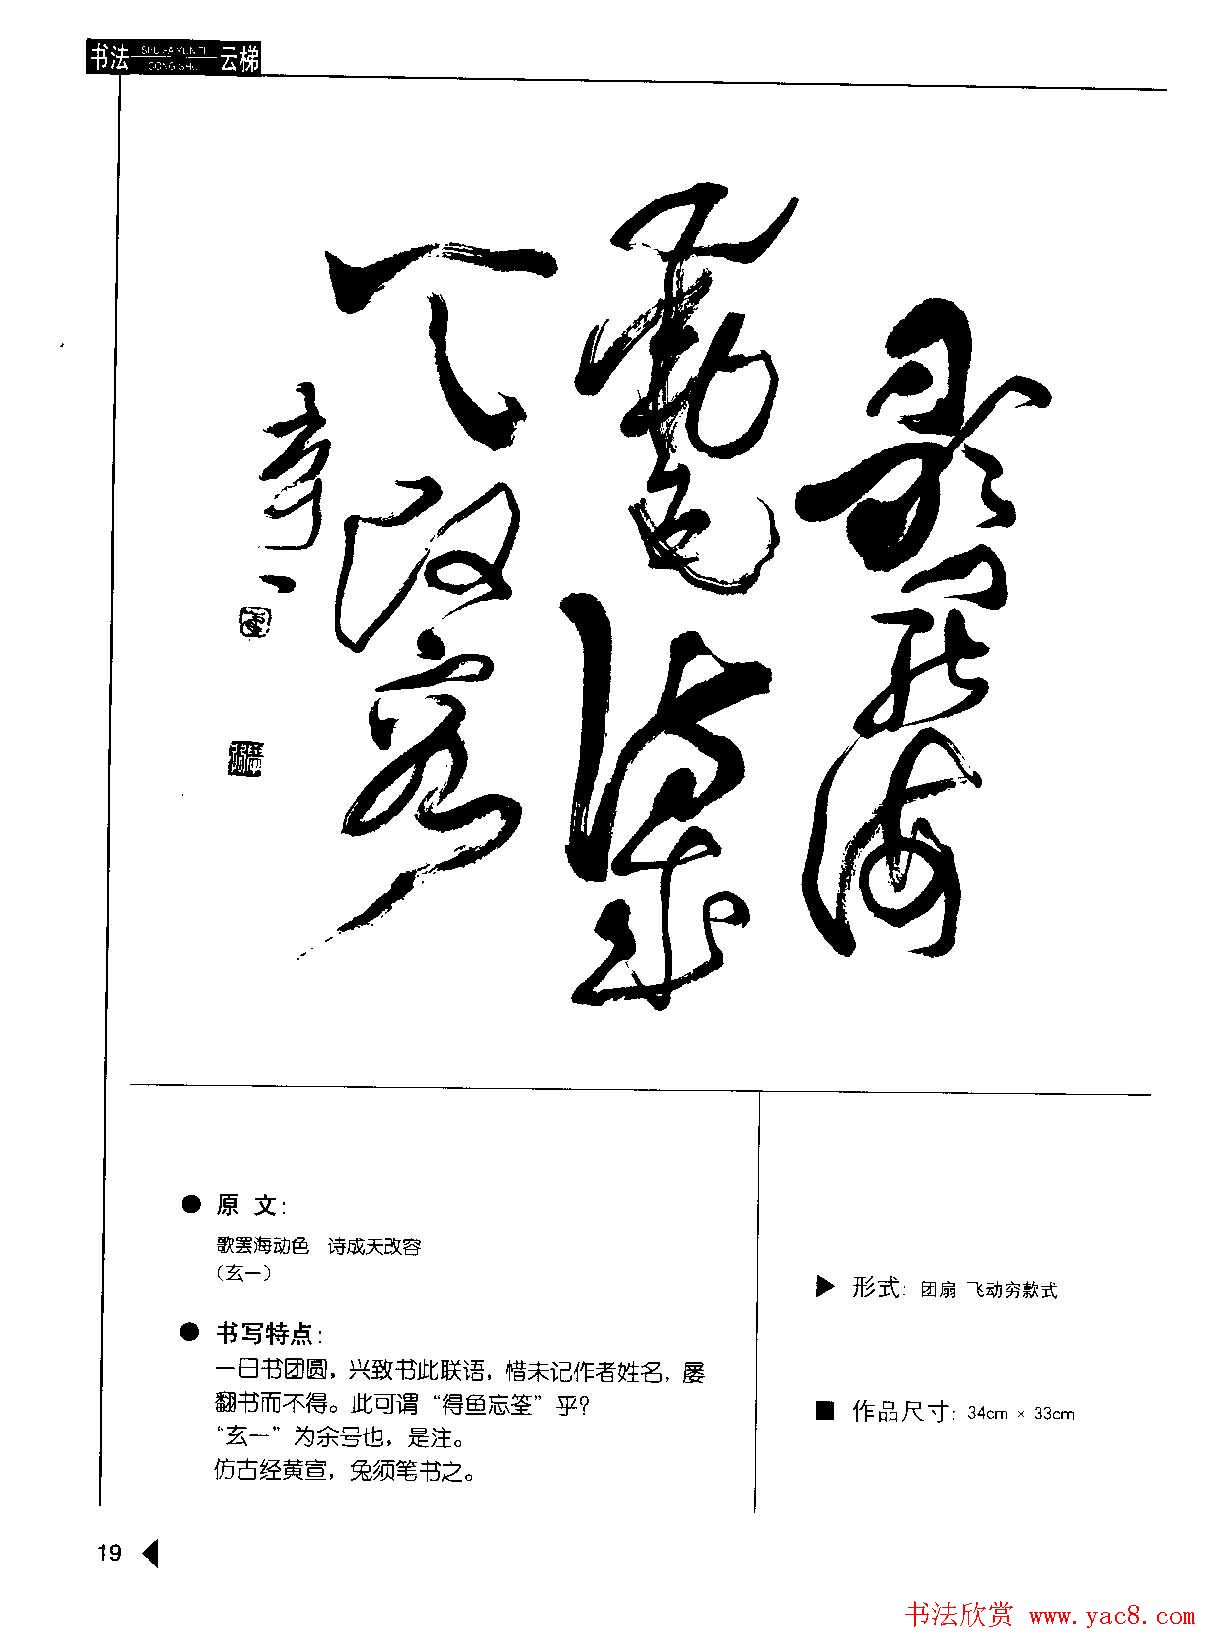 书法 SHU FA YUN TI CONG SHU 云梯
歌罢海
动色诗成
天改容
玄一
● 原 文：
歌罢海动色 诗成天改容
（玄一）
● 书写特点：
一日书团圆，兴致书此联语，惜未记作者姓名，屡
翻书而不得。此可谓“得鱼忘筌”乎？
“玄一”为余号也，是注。
仿古经黄宣，兔须笔书之。
▶ 形式：团扇 飞动穷款式
■ 作品尺寸：34cm × 33cm
19 ◀
书法欣赏 www.yac8.com